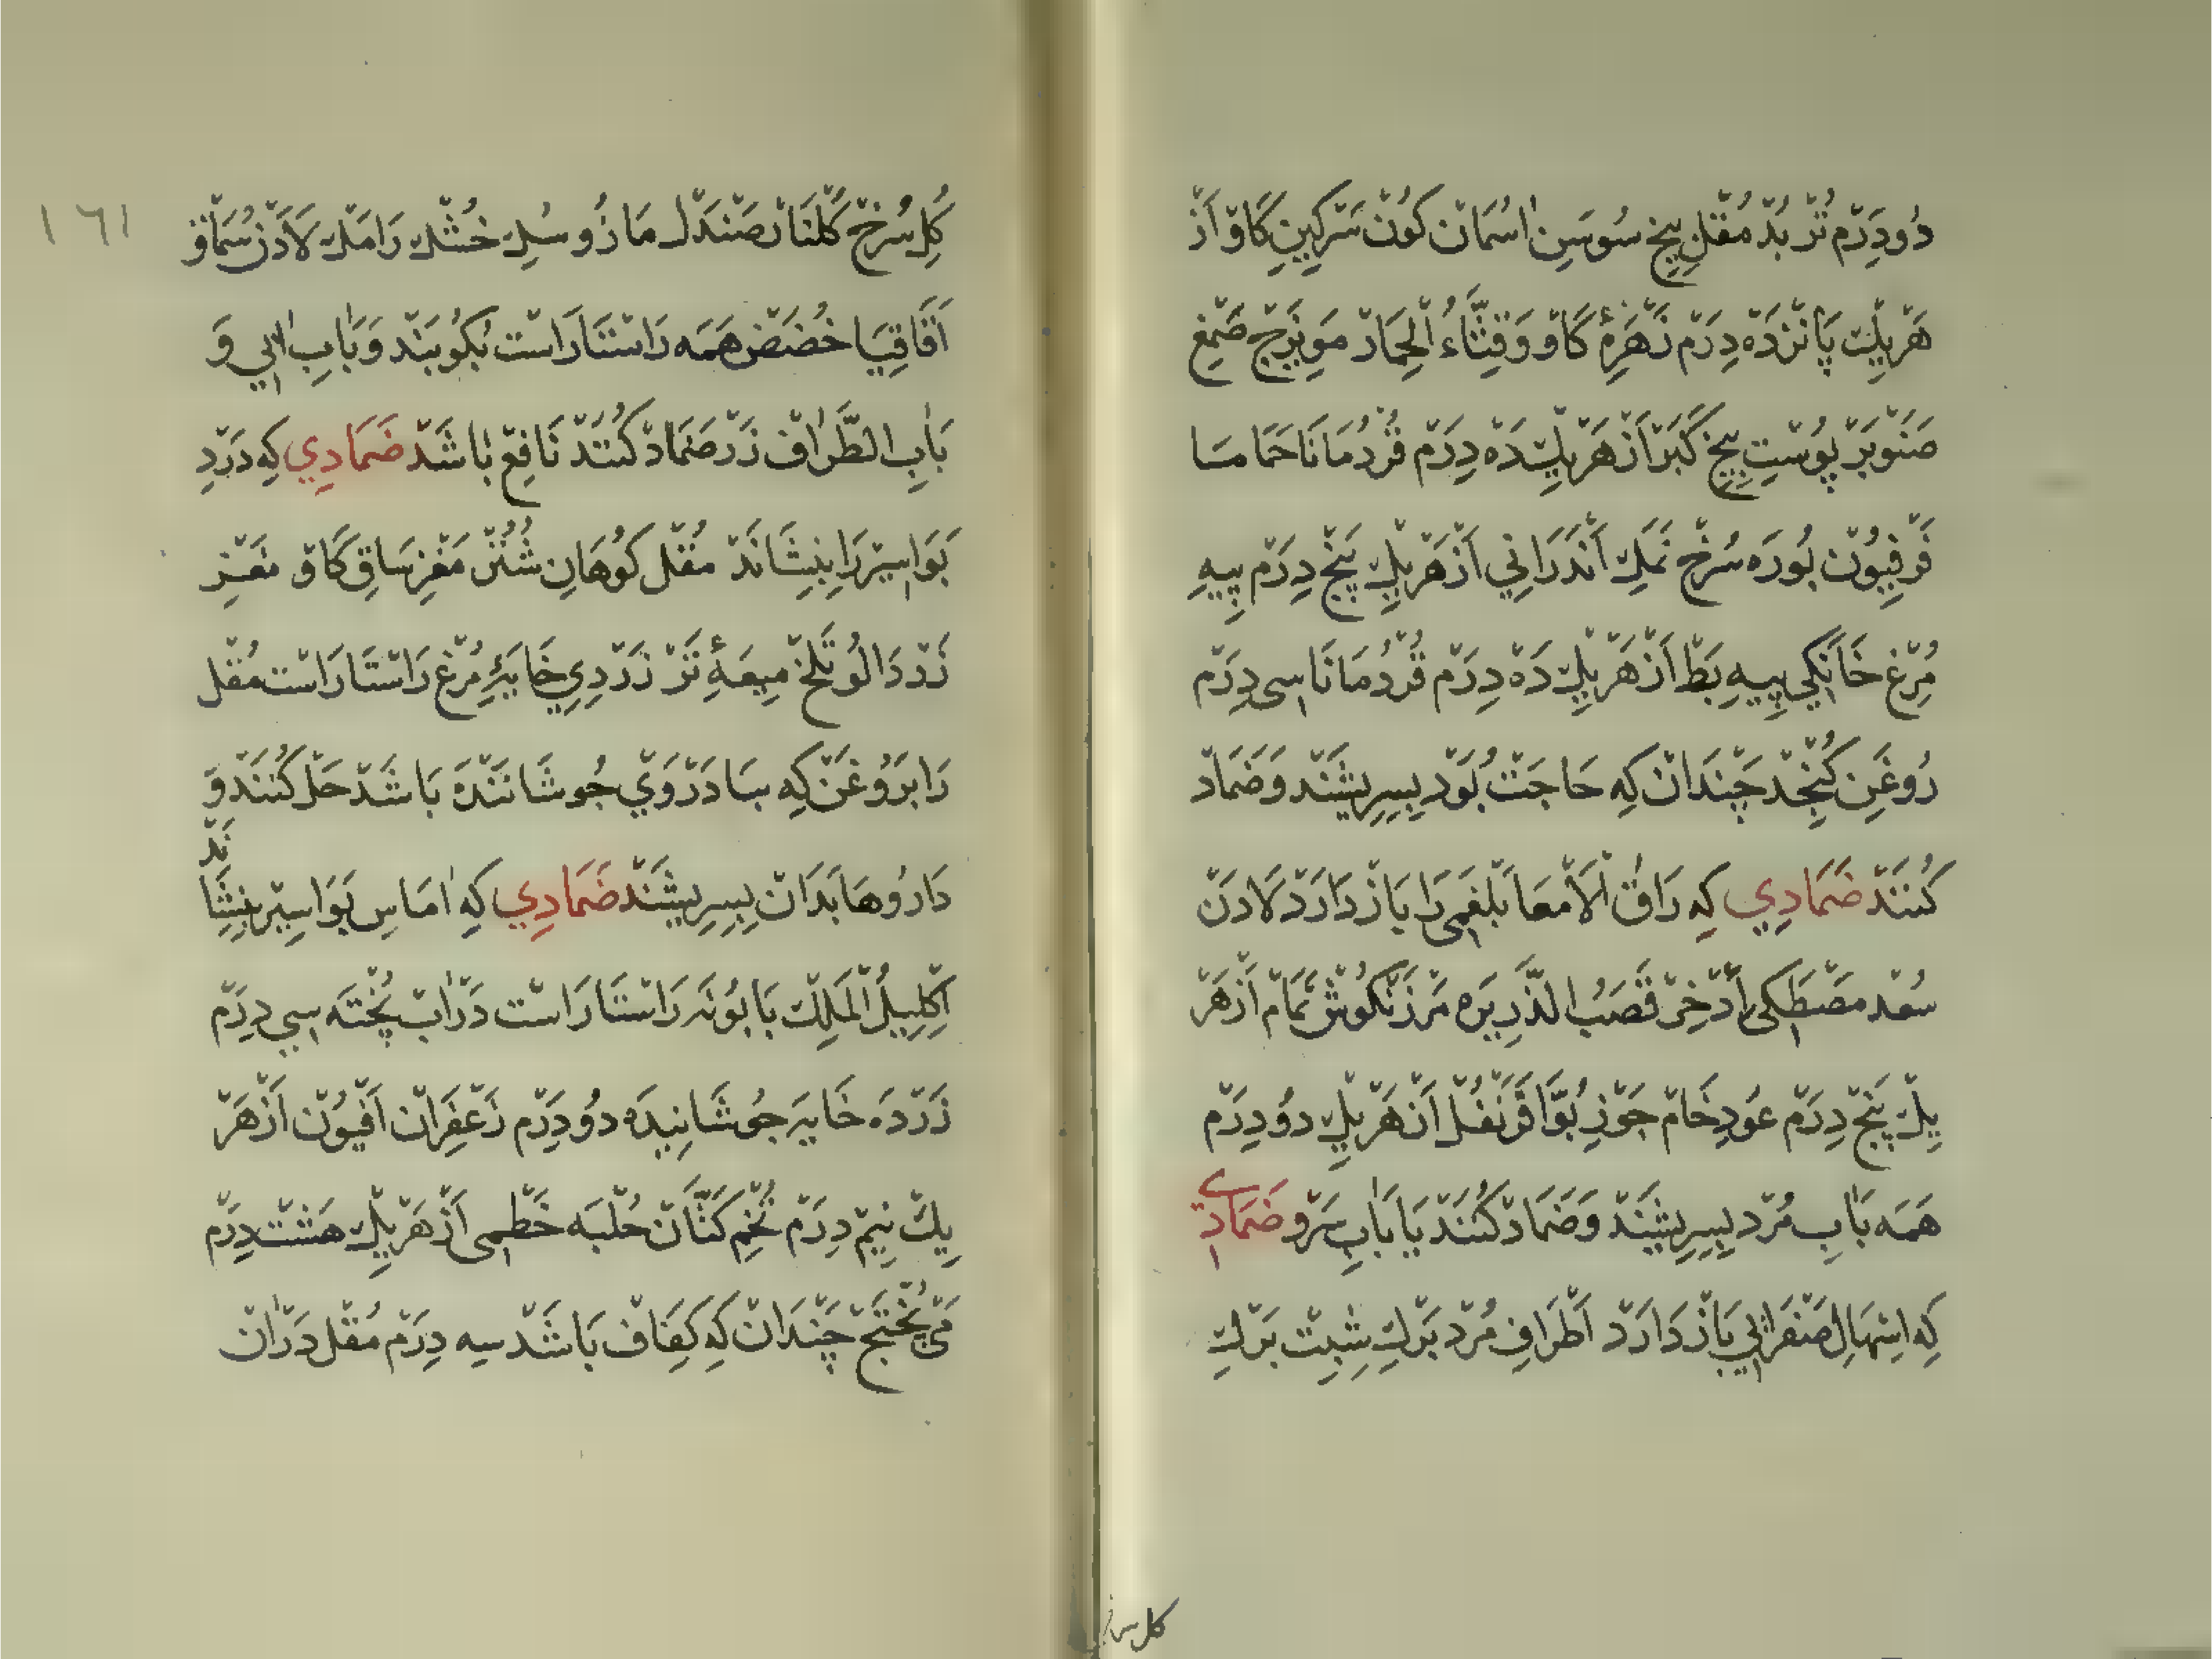 دُو دِرَمْ تُرْبُدْ مُقْلِ بیخِ سُوسَنِ اٰسْمَانْ کُونْ سَرْکِینِ کَاوْ اَزْ
هَرْیِكْ پَانْزدَه دِرَمْ زَهْرَهٔ کَاوْ وَ قِثَّاءُ الْحِمَارْ مَویزَجْ صَمْغِ
صَنَوْبَرْ پُوسْتِ بیخِ کَبَرْ اَزْ هَرْیِكْ دَه دِرَمْ قُرْدُمَانَا حَمَامَا
فَرْفِیُونْ بُورَه سُرْخْ نَمَكِ اَنْدَرَانی اَزْ هَرْیِكْ پَنْجْ دِرَمْ پیهِ
مُرْغِ خَانَکی پیهِ بَطْ اَزْ هَرْیِكْ دَه دِرَمْ قُرْدُمَانَا سی دِرَمْ
رُوغَنِ کُنْجِدْ چَنْدَانْ کِه حَاجَتْ بُوَدْ بِسِرِیشَنْد وَ ضَمَادْ
کُنَنْدْ ضَمَادِي کِه زَلَقُ الْاَمْعَا بَلْغَمی رَا بَازْ دَارَدْ لَادَنْ
سُعْد مَصْطَکی اِذْخِرْ قَصَبُ الذَّرِیرَه مَرْزَنْکُوشْ نَمَّامْ اَزْ هَرْ
یِكْ پَنْجْ دِرَمْ عُودِ خَامْ جَوْزِ بُوَّا قَرَنْفُلْ اَزْ هَرْیِكْ دُو دِرَمْ
هَمَه بَاٰبِ مُرْد بِسِرِیشَنْدْ وَ ضَمَادْ کُنَنْدْ یَا بَاٰبِ سَرْو ضَمَادِي
کِه اِسْهَالِ صَفْرَائی بَازْ دَارَدْ اَطْرَافِ مُرْد بَرْكِ شِبِتْ بَرْكِ
کل سرخ
١٦١
کُلِ سُرْخْ کُلْنَارْ صَنْدَلْ مَازُو سُكِ خُشْكْ رَامَكْ لَادَنْ سُمَّاقْ
اَقَاقِیَا حُضَضْ هَمَه رَاسْتَارَاسْت بُکُوبَنْد وَ بَاٰبِ اٰبی وَ
بَاٰبِ الطَّرَافْ زَرْ ضَمَادْ کُنَنْدْ نَافِعْ بَاشَدْ ضَمَادِي کِه دَرْدِ
بَوَاسِیرْ رَا بِنِشَانَدْ مُقْل کُوهَانِ شُتُرْ مَغْزِ سَاقِ کَاوْ مَغْزِ
زَرْدَالُو تَلْخْ مِیعَهٔ تَرْ زَرْدِيِ خَایَهٔ مُرْغ رَاسْتَارَاسْت مُقْل
رَا بَرَوُغَنْ کِه بیَا دَرْ وَيْ جُوشَانَنْدَه بَاشَدْ حَلْ کُنَنْدْ وَ
دَارُوهَا بَدَانْ بِسِرِیشَنْدْ ضَمَادِي کِه اٰمَاسِ بَوَاسِیرْ بِنِشَانَدْ
اِکْلِیلُ الْمَلِكْ بَابُونَه رَاسْتَارَاسْت دَرْاٰبْ پُخْتَه سی دِرَمْ
زَرْدَه خَایَه جُوشَانِیدَه دُو دِرَمْ زَعْفَرَانْ اَفْیُونْ اَزْ هَرْ
یِكْ نِیمْ دِرَمْ تُخْمِ کَتَّانْ حُلْبَه خَطْمی اَزْ هَرْیِكْ هَشْتْ دِرَمْ
مَيْ پُخْتَجْ چَنْدَانْ کِه کَفَافْ بَاشَدْ سِه دِرَمْ مُقْل دَرْاٰنْ